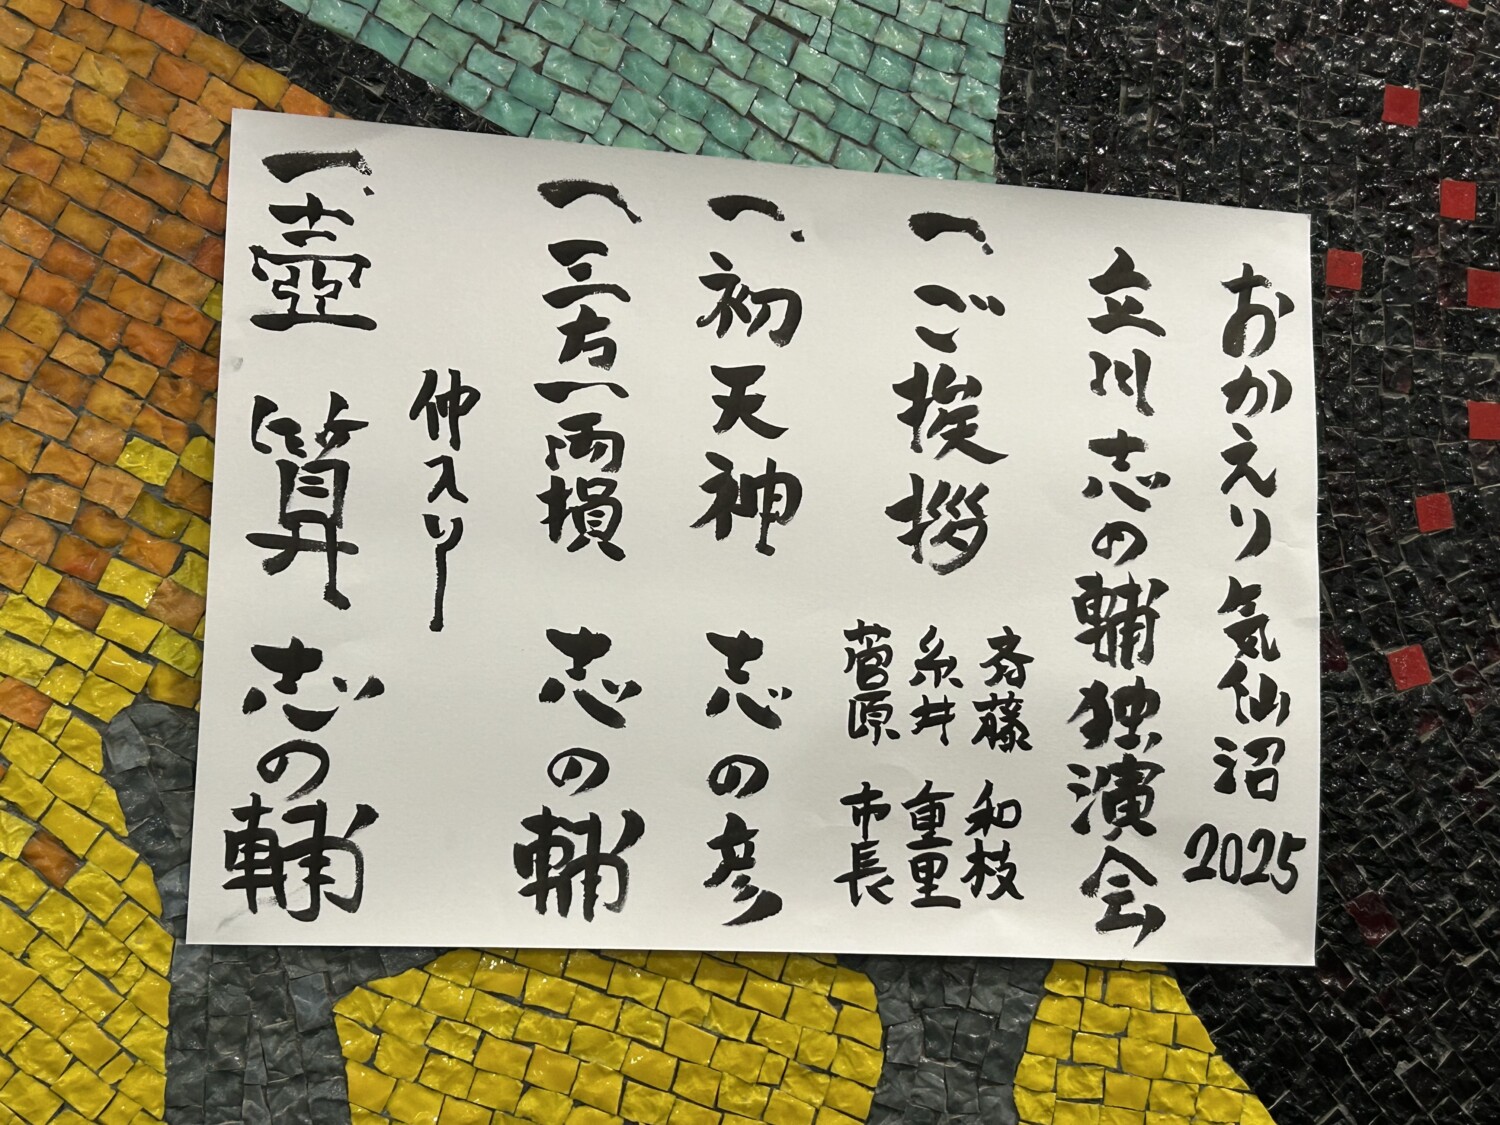 おかえり気仙沼2025
立川志の輔独演会
一、ご挨拶
斉藤 和枝
糸井 重里
菅原 市長
一、初天神 志の彦
一、三方一両損 志の輔
仲入り
一、壺算 志の輔